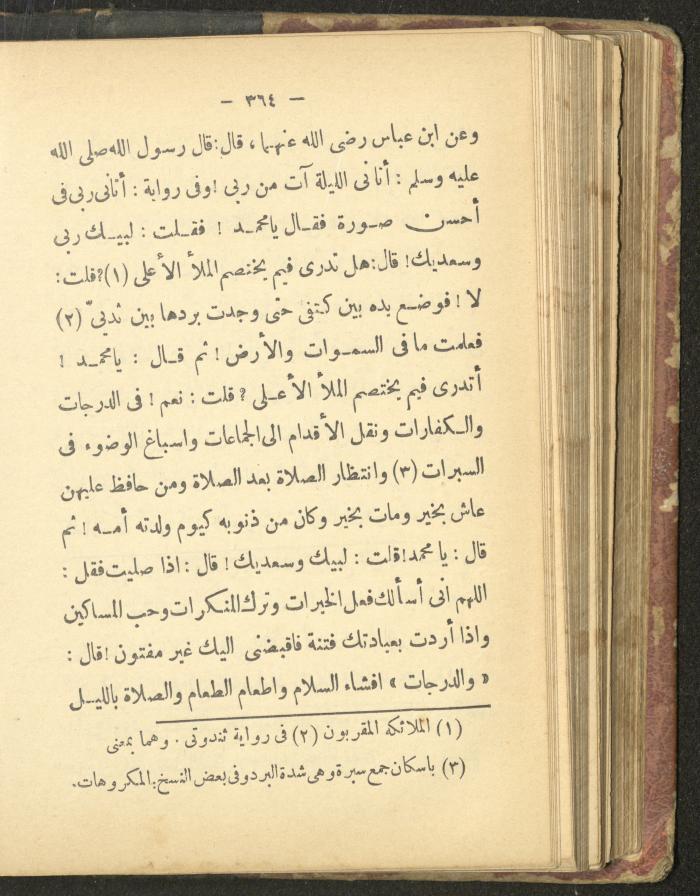 — ٣٦٤ —
وعن ابن عباس رضى الله عنهما ، قال:قال رسول الله صلى الله
عليه وسلم : أتانى الليلة آت من ربى !وفى رواية : أتانى ربى فى
أحسن صورة فقال يامحمد ! فقلت : لبيك ربى
وسعديك! قال:هل تدرى فيم يختصم الملأ الأعلى (١)؟قلت:
لا ! فوضع يده بين كتفى حتى وجدت بردها بين ثديىّ (٢)
فعلمت ما فى السموات والأرض ! ثم قال : يامحمد !
أتدرى فيم يختصم الملأ الأعلى ؟ قلت : نعم ! فى الدرجات
والكفارات ونقل الأقدام الى الجماعات واسباغ الوضوء فى
السبرات (٣) وانتظار الصلاة بعد الصلاة ومن حافظ عليهن
عاش بخير ومات بخير وكان من ذنوبه كيوم ولدته أمه ! ثم
قال : يا محمد!قلت : لبيك وسعديك! قال : اذا صليت فقل :
اللهم انى أسألك فعل الخيرات وترك المنكرات وحب المساكين
واذا أردت بعبادتك فتنة فاقبضنى اليك غير مفتون !قال :
« والدرجات » افشاء السلام واطعام الطعام والصلاة بالليل
(١) الملائكه المقربون (٢) فى رواية ثندوتى . وهما بمعنى
(٣) باسكان جمع سبرة وهى شدة البرد وفى بعض النسخ: المكروهات.